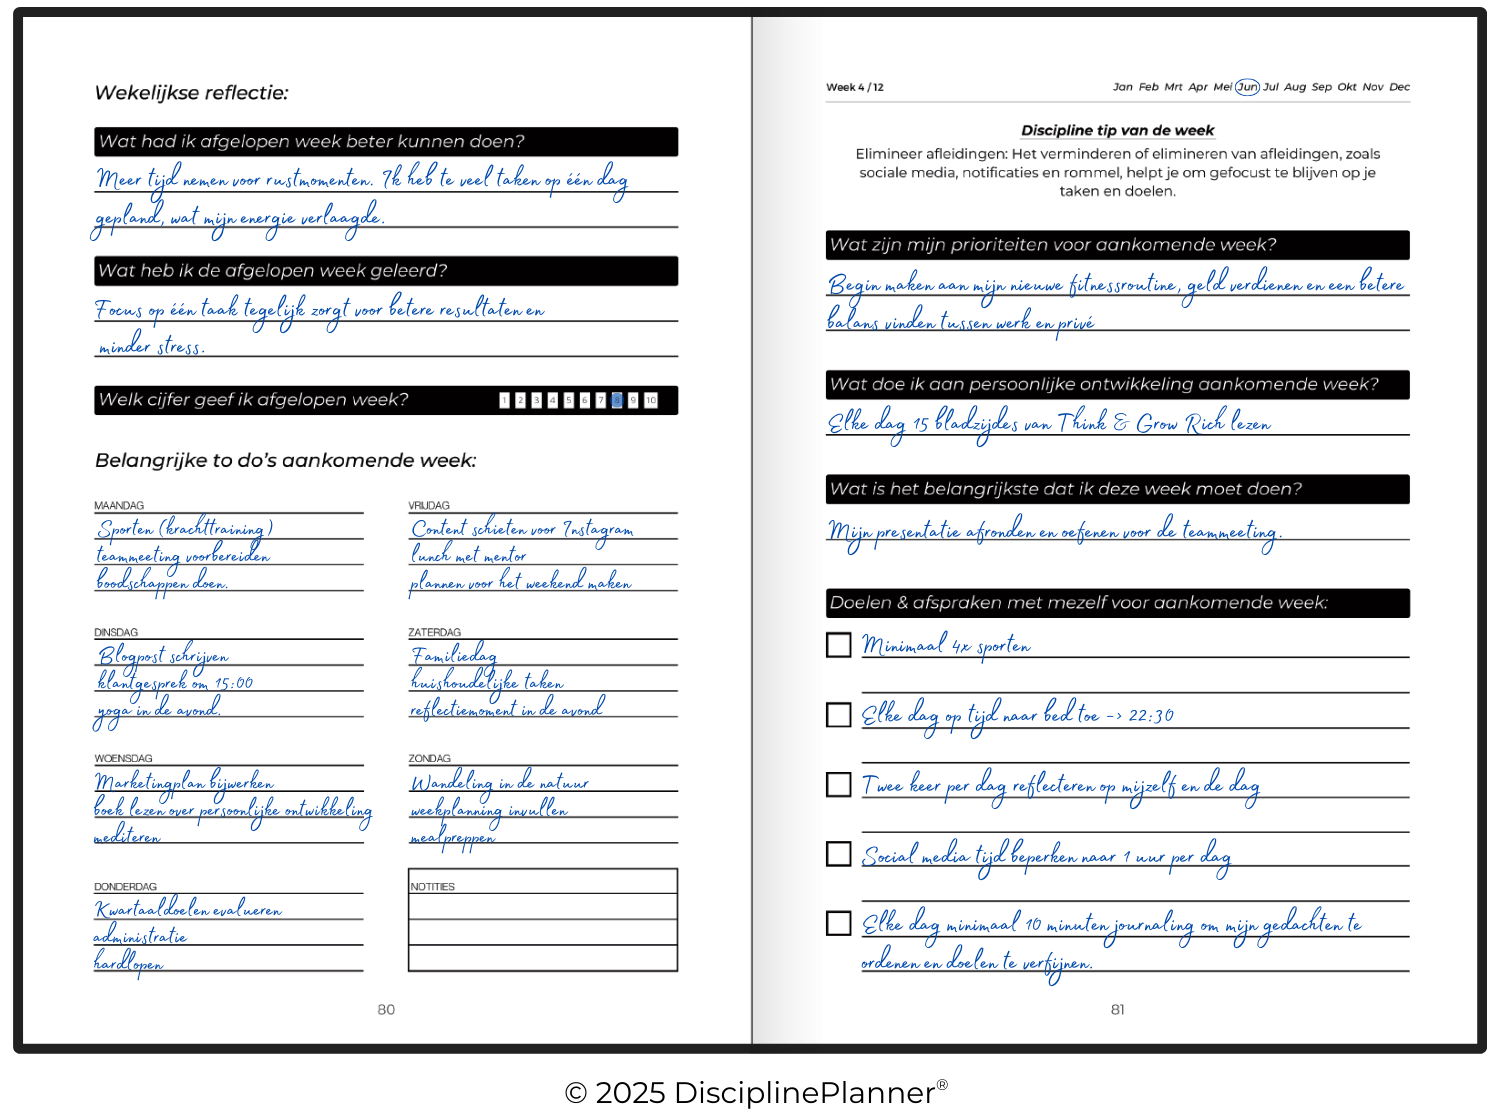 Wekelijkse reflectie:
Wat had ik afgelopen week beter kunnen doen?
Meer tijd nemen voor rustmomenten. Ik heb te veel taken op één dag
gepland, wat mijn energie verlaagde.
Wat heb ik de afgelopen week geleerd?
Focus op één taak tegelijk zorgt voor betere resultaten en
minder stress.
Welk cijfer geef ik afgelopen week? 1 2 3 4 5 6 7 8 9 10
Belangrijke to do's aankomende week:
MAANDAG
Sporten (krachttraining)
teammeeting voorbereiden
boodschappen doen.
DINSDAG
Blogpost schrijven
klantgesprek om 15:00
yoga in de avond.
WOENSDAG
Marketingplan bijwerken
boek lezen over persoonlijke ontwikkeling
mediteren
DONDERDAG
Kwartaaldoelen evalueren
administratie
hardlopen
VRIJDAG
Content schieten voor Instagram
lunch met mentor
plannen voor het weekend maken
ZATERDAG
Familiedag
huishoudelijke taken
reflectiemoment in de avond
ZONDAG
Wandeling in de natuur
weekplanning invullen
mealpreppen
NOTITIES
80
Week 4 / 12
Jan Feb Mrt Apr Mei Jun Jul Aug Sep Okt Nov Dec
Discipline tip van de week
Elimineer afleidingen: Het verminderen of elimineren van afleidingen, zoals
sociale media, notificaties en rommel, helpt je om gefocust te blijven op je
taken en doelen.
Wat zijn mijn prioriteiten voor aankomende week?
Begin maken aan mijn nieuwe fitnessroutine, geld verdienen en een betere
balans vinden tussen werk en privé
Wat doe ik aan persoonlijke ontwikkeling aankomende week?
Elke dag 15 bladzijdes van Think & Grow Rich lezen
Wat is het belangrijkste dat ik deze week moet doen?
Mijn presentatie afronden en oefenen voor de teammeeting.
Doelen & afspraken met mezelf voor aankomende week:
Minimaal 4x sporten
Elke dag op tijd naar bed toe -> 22:30
Twee keer per dag reflecteren op mijzelf en de dag
Social media tijd beperken naar 1 uur per dag
Elke dag minimaal 10 minuten journaling om mijn gedachten te
ordenen en doelen te verfijnen.
81
© 2025 DisciplinePlanner®